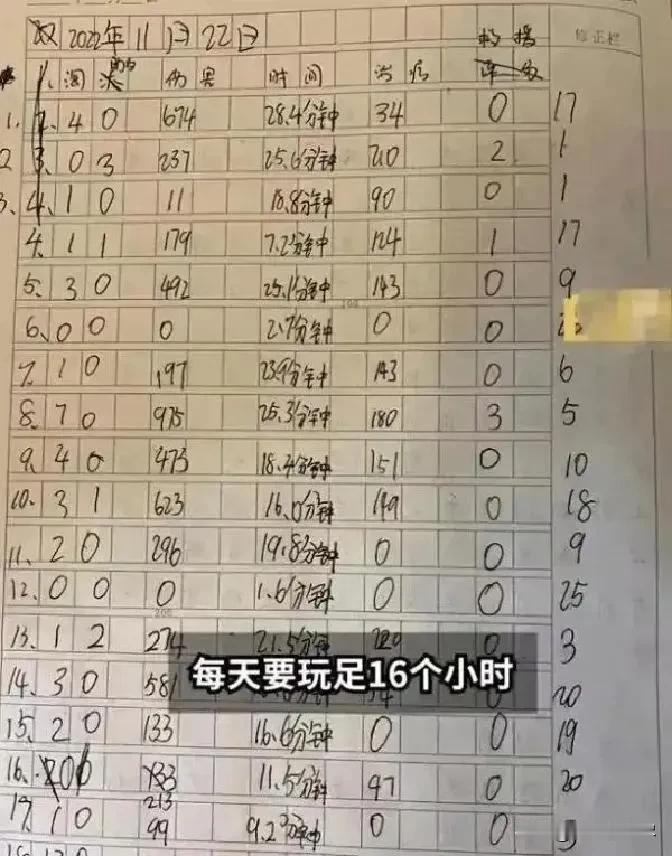 双 2022年11月22日 修正栏
淘汰 助攻 伤害 时间 治疗 救援
1. 4 0 674 28.4分钟 34 0 17
2 3. 0 3 237 25.6分钟 210 2 1
3. 4. 1 0 11 18.8分钟 90 0 1
4. 1 1 179 7.2分钟 124 1 17
5. 3 0 492 25.1分钟 143 0 9
6. 0 0 0 2.7分钟 0 0
7. 1 0 197 23.9分钟 143 0 6
8. 7 0 975 25.3分钟 180 3 5
9. 4 0 473 18.4分钟 151 0 10
10. 3 1 623 16.0分钟 149 0 18
11. 2 0 296 19.8分钟 0 0 9
12. 0 0 0 1.6分钟 0 0 25
200
13. 1 2 274 21.5分钟 220 0 3
每天要玩足16个小时
14. 3 0 581 20
15. 2 0 133 16.6分钟 0 0 19
16. 133 11.5分钟 97 0 20
213
17. 1 0 99 9.2分钟 0 0